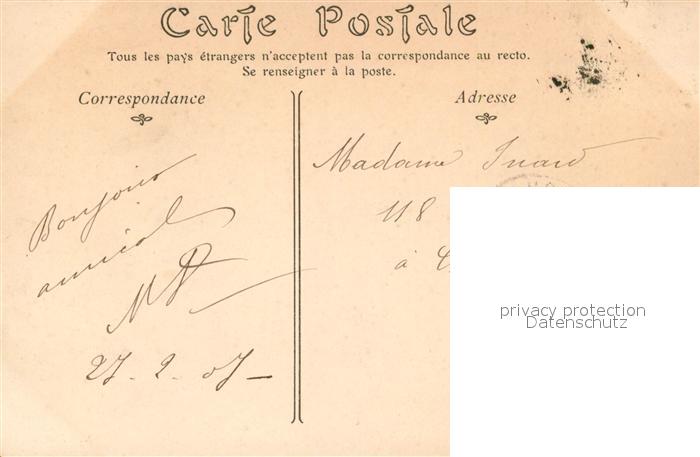 Carte Postale
Tous les pays étrangers n'acceptent pas la correspondance au recto.
Se renseigner à la poste.
Correspondance
Bonjour
amical
27_2_07_
Adresse
Madame
118
à
privacy protection
Datenschutz